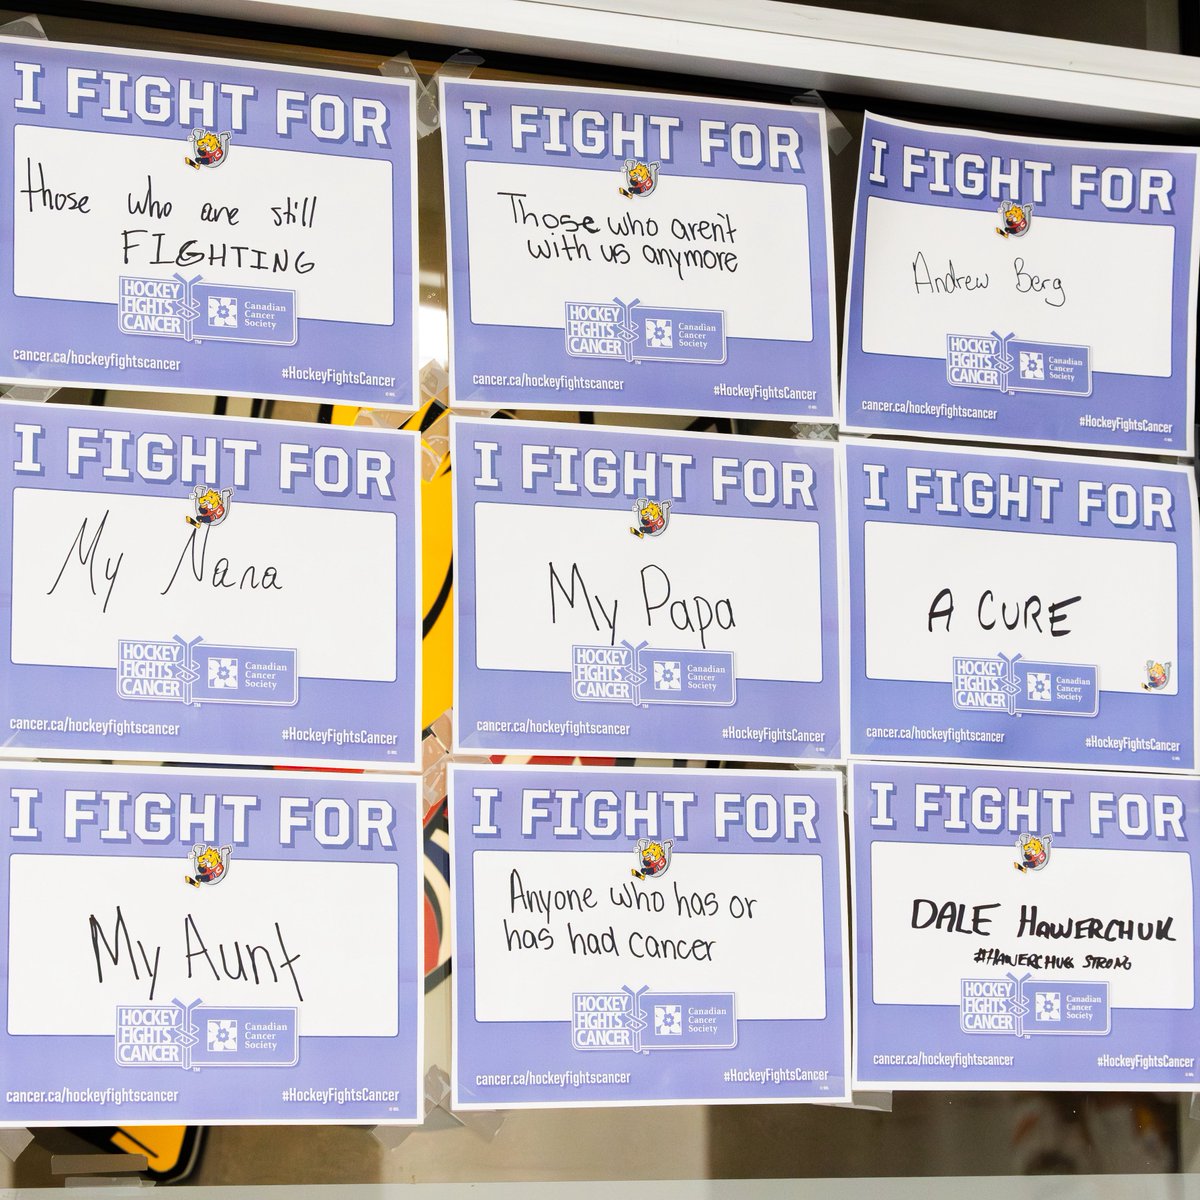 I FIGHT FOR
those who are still
FIGHTING
HOCKEY
FIGHTS
CANCER
TM
Canadian
Cancer
Society
cancer.ca/hockeyfightscancer
#HockeyFightsCancer
I FIGHT FOR
Those who aren't
with us anymore
HOCKEY
FIGHTS
CANCER
TM
Canadian
Cancer
Society
cancer.ca/hockeyfightscancer
#HockeyFightsCancer
I FIGHT FOR
Andrew Berg
HOCKEY
FIGHTS
CANCER
TM
Canadian
Cancer
Society
cancer.ca/hockeyfightscancer
#HockeyFightsCancer
I FIGHT FOR
My Nana
HOCKEY
FIGHTS
CANCER
TM
Canadian
Cancer
Society
cancer.ca/hockeyfightscancer
#HockeyFightsCancer
I FIGHT FOR
My Papa
HOCKEY
FIGHTS
CANCER
TM
Canadian
Cancer
Society
cancer.ca/hockeyfightscancer
#HockeyFightsCancer
I FIGHT FOR
A CURE
HOCKEY
FIGHTS
CANCER
TM
Canadian
Cancer
Society
cancer.ca/hockeyfightscancer
#HockeyFightsCancer
I FIGHT FOR
My Aunt
HOCKEY
FIGHTS
CANCER
TM
Canadian
Cancer
Society
cancer.ca/hockeyfightscancer
#HockeyFightsCancer
I FIGHT FOR
Anyone who has or
has had cancer
HOCKEY
FIGHTS
CANCER
TM
Canadian
Cancer
Society
cancer.ca/hockeyfightscancer
#HockeyFightsCancer
I FIGHT FOR
DALE HAWERCHUK
#HAWERCHUK STRONG
HOCKEY
FIGHTS
CANCER
TM
Canadian
Cancer
Society
cancer.ca/hockeyfightscancer
#HockeyFightsCancer